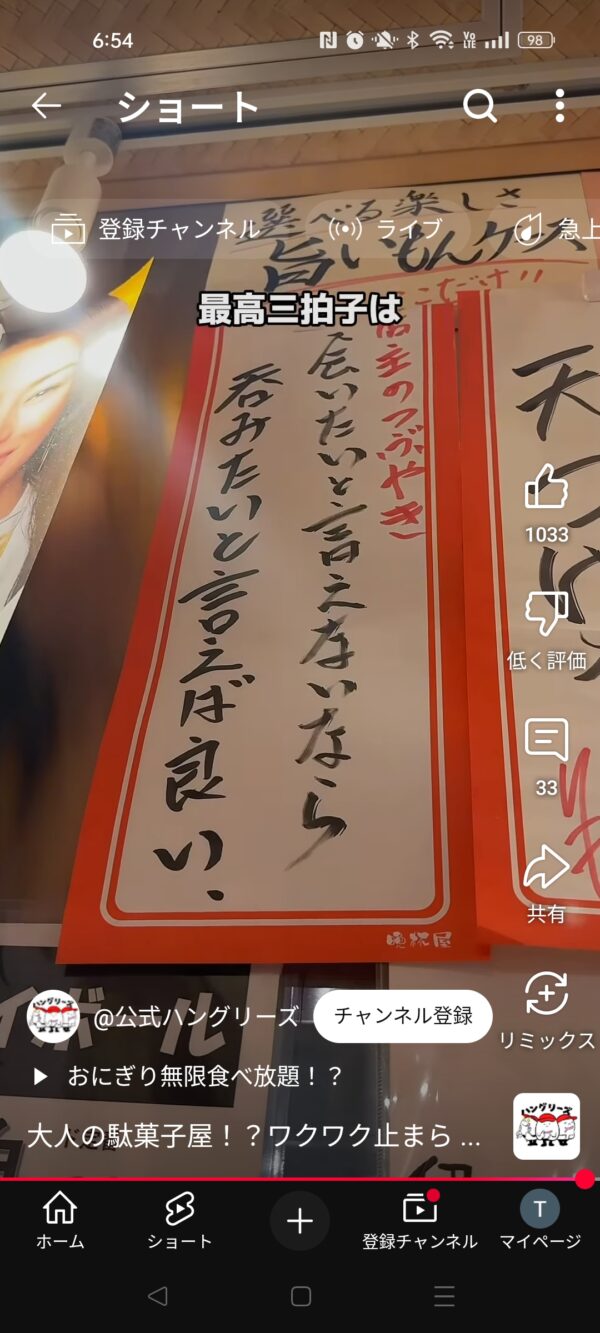 6:54
98
ショート
登録チャンネル
ライブ
急上
選べる楽しさ
旨いもんケース
こだけ!!
最高三拍子は
店主のつぶやき
会いたいと言えないなら
呑みたいと言えば良い、
晩杯屋
天つ
1033
低く評価
33
共有
リミックス
イボール
@公式ハングリーズ
チャンネル登録
おにぎり無限食べ放題!?
大人の駄菓子屋!?ワクワク止まら ...
ハングリーズ
ホーム
ショート
登録チャンネル
T
マイページ